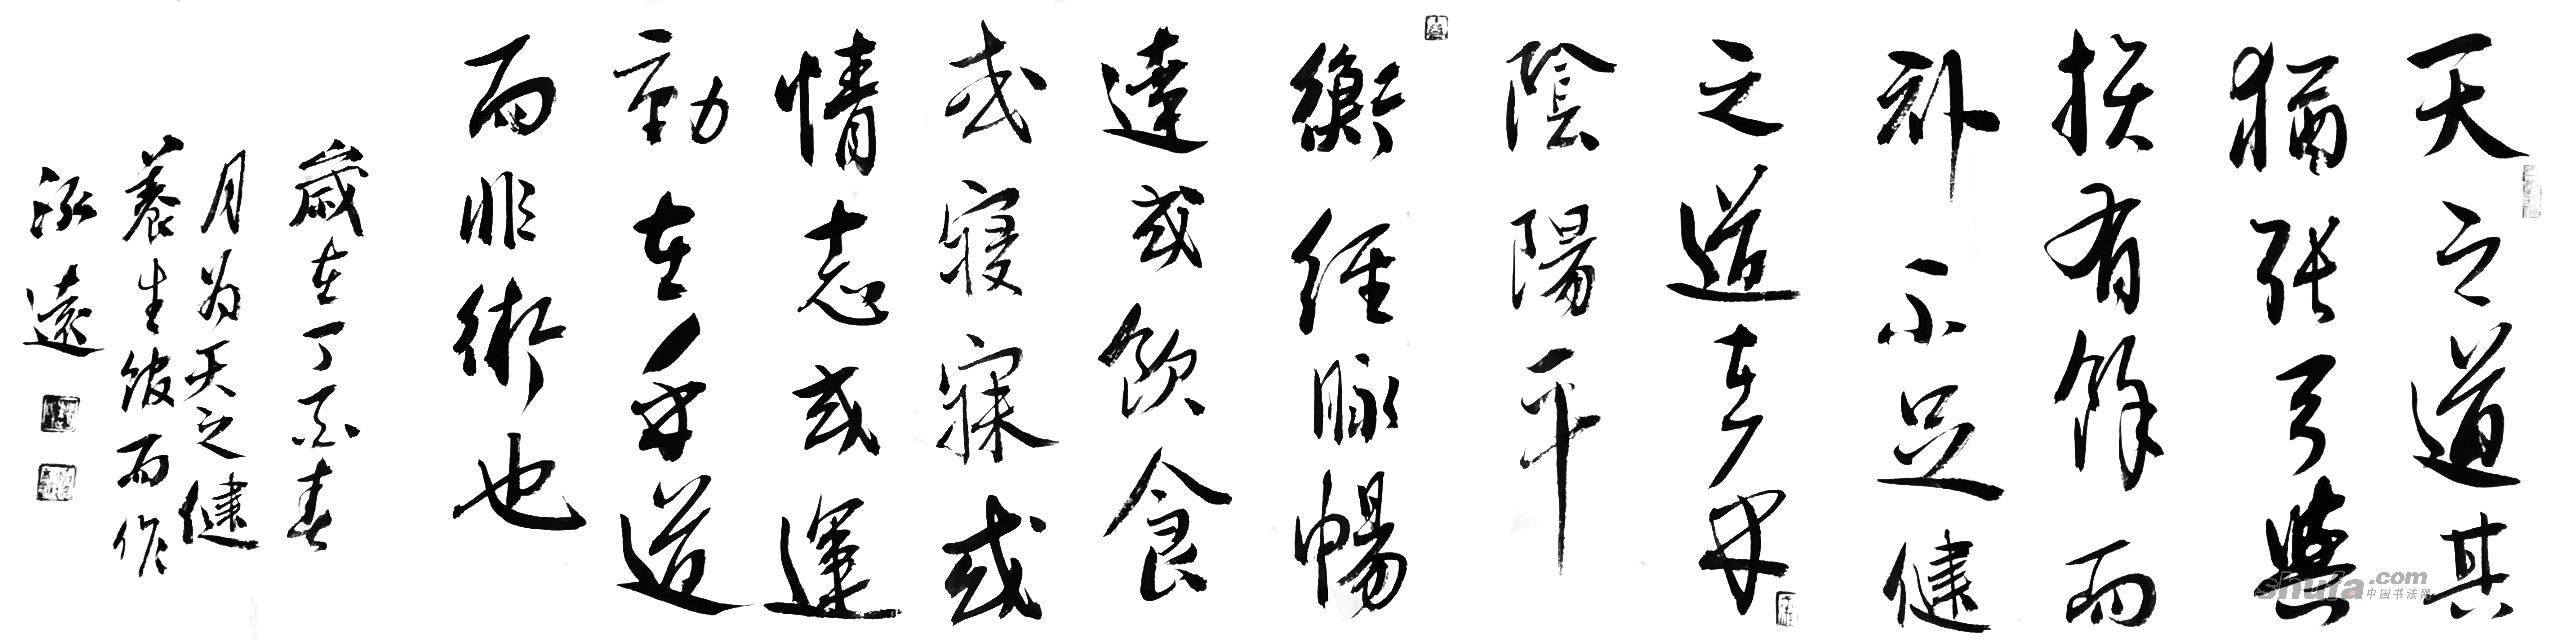 天之道其
猶張弓與
損有餘而
補不足健
之道在乎
陰陽平
衡經脈暢
達或飲食
或寢寐或
情志或運
動在乎道
而非術也
歲在丁酉春
月為天之健
養生館而作
泓遠
shufa.com
中国书法网